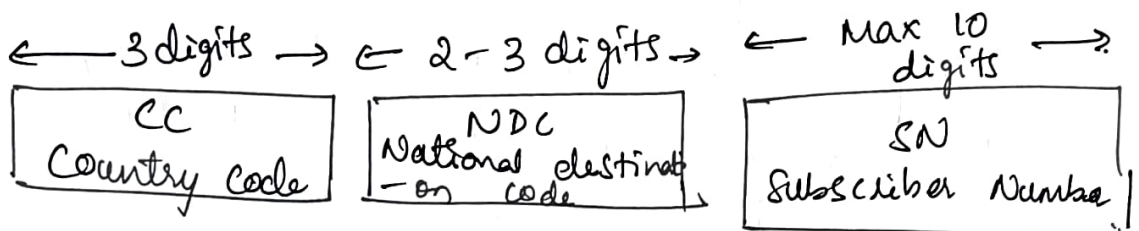 3 digits
2 - 3 digits
Max 10
digits
CC
Country code
NDC
National destinati
-on code
SN
Subscriber Number